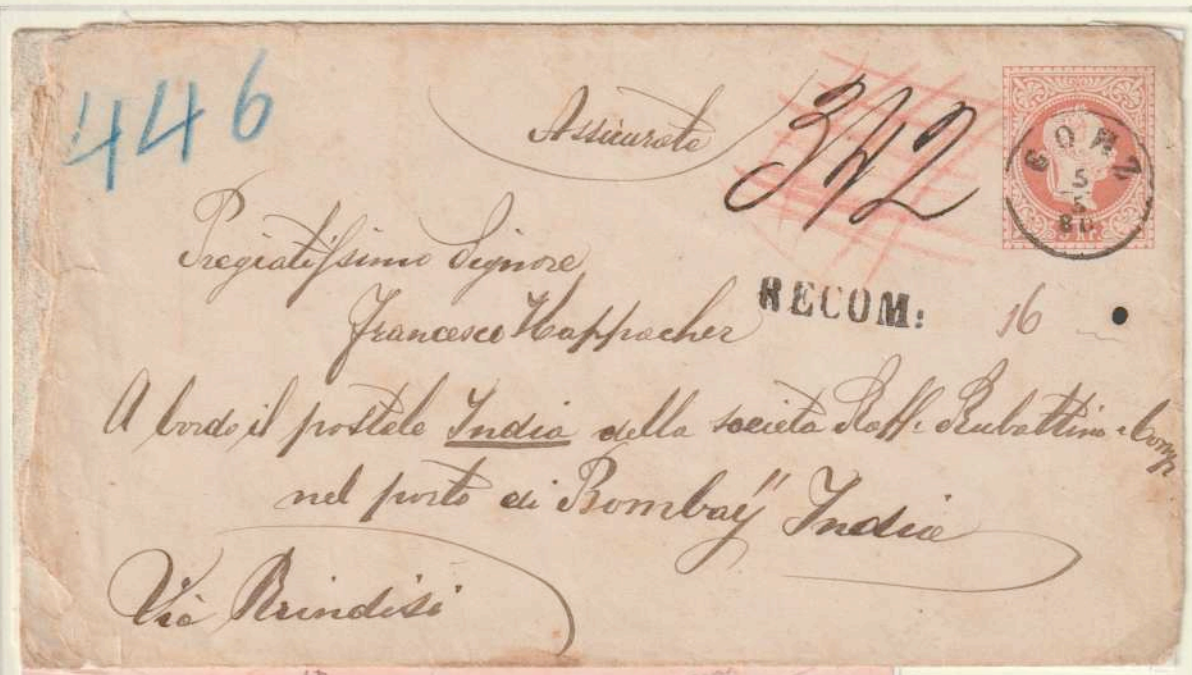 446
Assicurata
342
GÖRZ
5
5
80
5 KR.
Pregiatissimo Signore
RECOM:
16
Francesco Happacher
A bordo il postale India della società Raff. Rubattino e Comp
nel porto di Bombaÿ India
Via Brindisi